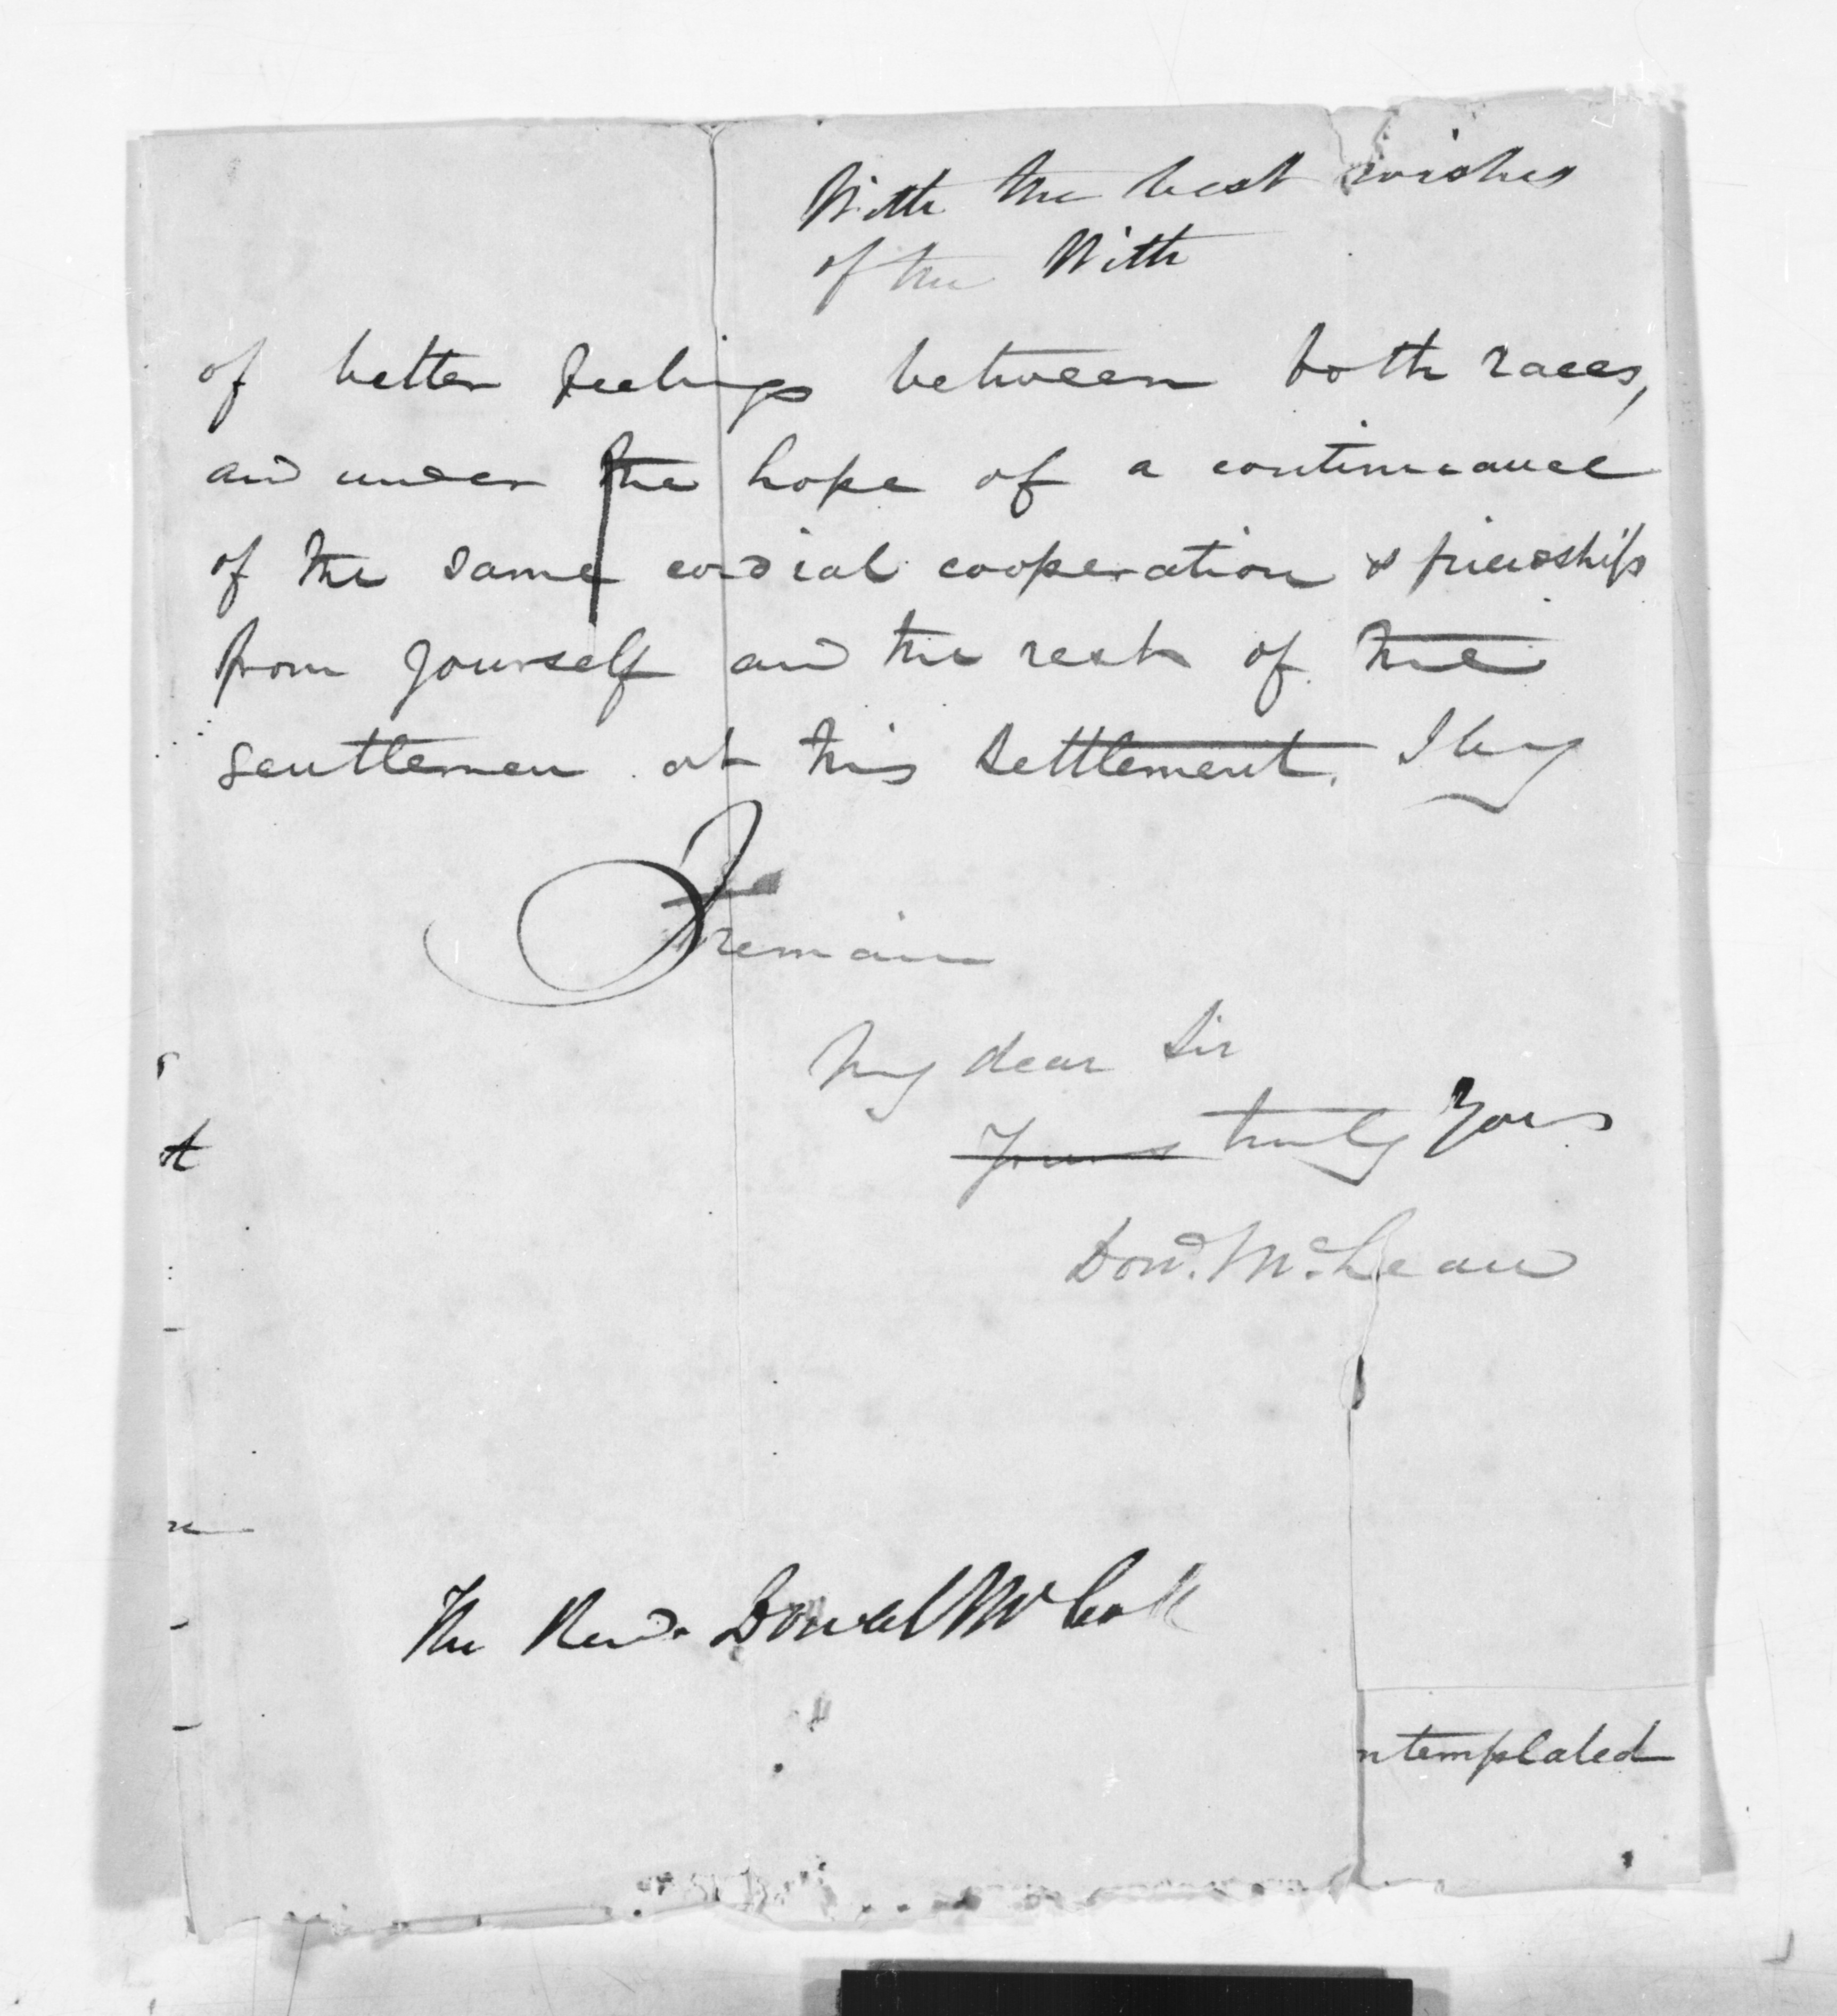 With the best wishes
of the With
of better feelings between both races,
and under the hope of a continuance
of the same cordial cooperation & friendship
from yourself and the rest of the
gentlemen at this settlement. I beg
remain
My dear Sir
Yours truly Yours
Dond. McLean
The Revd. Donald
ntemplated